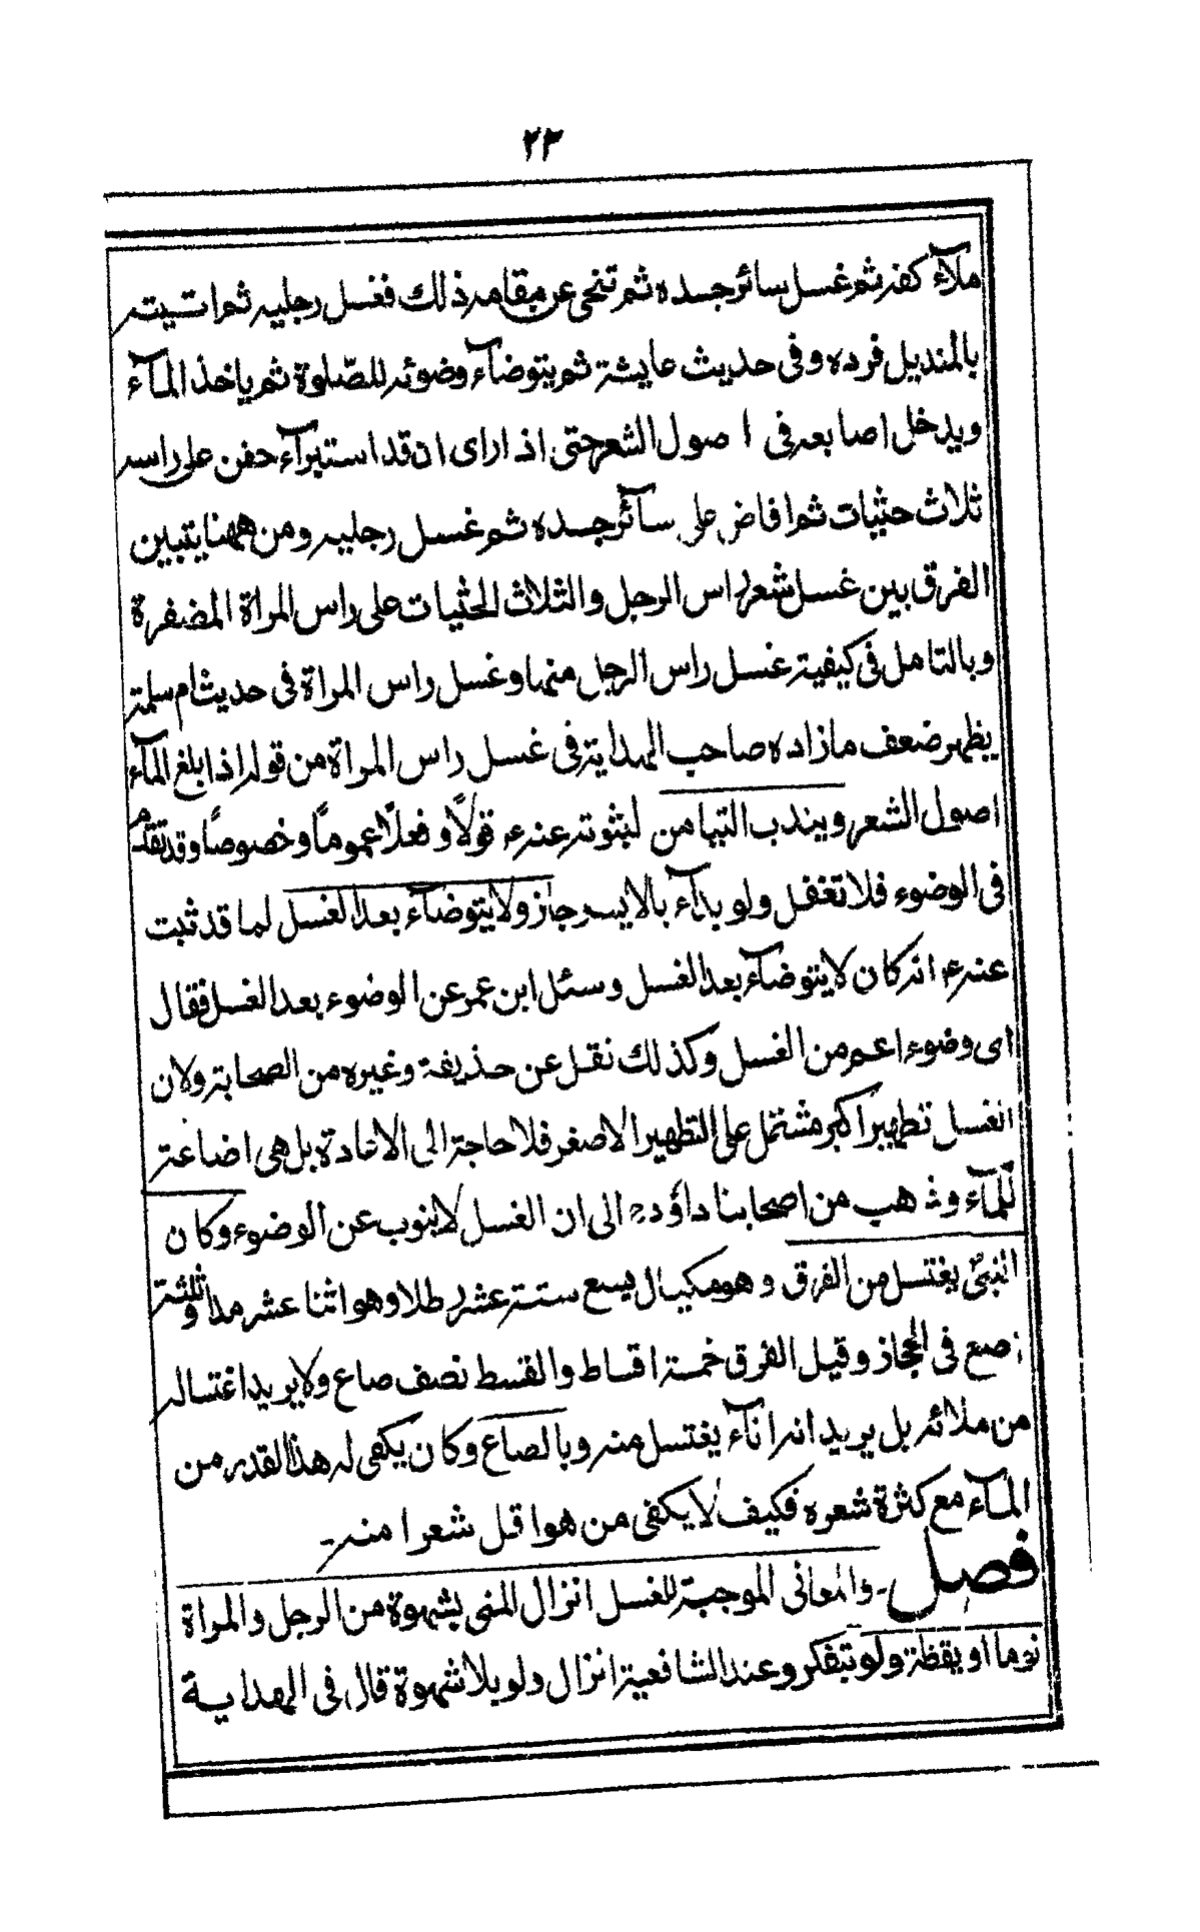 ٢٣
ملآء كفه ثم غسل سائر جسده ثم تنحى عن مقامه ذلك فغسل رجليه ثم اتيته
بالمنديل فرده وفى حديث عايشة ثم يتوضآء وضوئه للصّلوة ثم ياخذ المآء
ويدخل اصابعه فى اصول الشعر حتى اذا راى ان قد استبرآء حفن على راسه
ثلاث حثيات ثم افاض على سآئر جسده ثم غسل رجليه ومن ههنا يتبين
الفرق بين غسل شعر راس الرجل والثلاث الحثيات على راس المراة المضفرة
وبالتامل فى كيفية غسل راس الرجل منها وغسل راس المراة فى حديث ام سلمة
يظهر ضعف ما زاده صاحب الهداية فى غسل راس المراة من قوله اذا بلغ المآء
اصول الشعر ويندب التيامن لثبوته عنه ع قولًا وفعلًا عمومًا وخصوصًا وقد تقدم
فى الوضوء فلا تغفل ولو بدآء بالايسر جاز ولا يتوضآء بعد الغسل لما قد ثبت
عنه ع انه كان لا يتوضآء بعد الغسل وسئل ابن عمر عن الوضوء بعد الغسل فقال
اى وضوء اعم من الغسل وكذلك نقل عن حذيفة وغيره من الصحابة ولان
الغسل تطهير اكبر مشتمل على التطهير الاصغر فلا حاجة الى الاعادة بل هى اضاعة
للمآء وذهب من اصحابنا داؤد الى ان الغسل لا ينوب عن الوضوء وكان
النبىّ يغتسل من الفرق وهو مكيال يسع ستة عشر رطلا وهو اثنا عشر مدا وثلثة
اصع فى الحجاز وقيل الفرق خمسة اقساط والقسط نصف صاع ولا يريد اغتساله
من ملائه بل يريد انه اناآء يغتسل منه وبالصاع وكان يكفى له هذا القدر من
المآء مع كثرة شعره فكيف لا يكفى من هو اقل شعرا منه ـ
فصل ـ والمعانى الموجبة للغسل انزال المنى بشهوة من الرجل والمراة
نوما او يقظة ولو بتفكر وعند الشافعية انزال ولو بلا شهوة قال فى الهداية